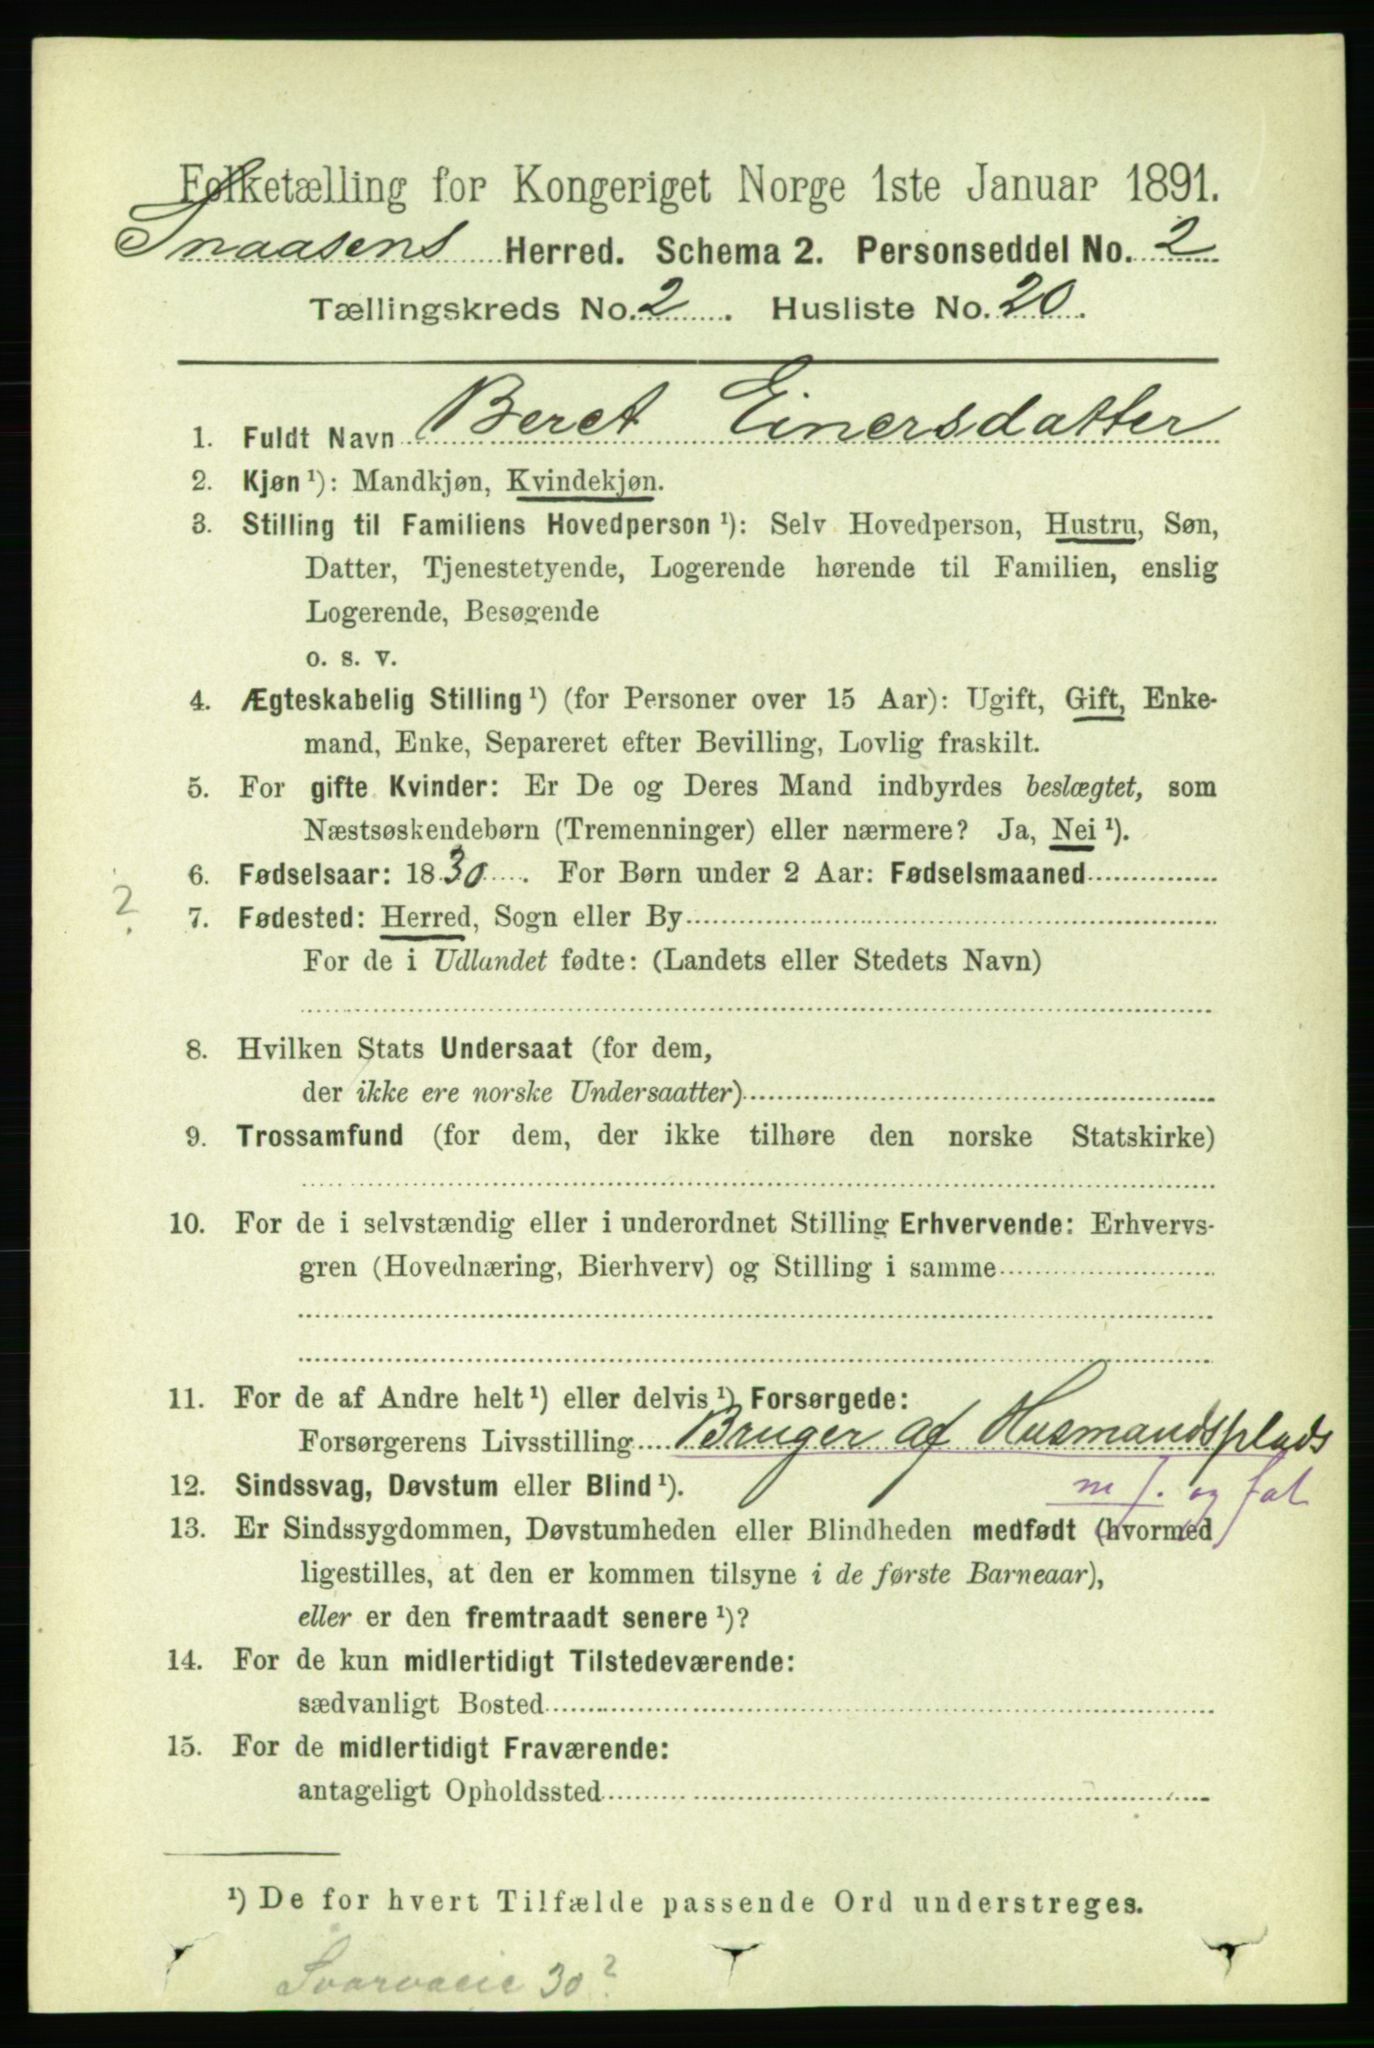 Folketælling for Kongeriget Norge 1ste Januar 1891.
Snaasens Herred. Schema 2. Personseddel No. 2
Tællingskreds No. 2. Husliste No. 20.
1. Fuldt Navn Beret Einersdatter
2. Kjøn ¹): Mandkjøn, Kvindekjøn.
3. Stilling til Familiens Hovedperson ¹): Selv Hovedperson, Hustru, Søn,
Datter, Tjenestetyende, Logerende hørende til Familien, enslig
Logerende, Besøgende
o. s. v.
4. Ægteskabelig Stilling ¹) (for Personer over 15 Aar): Ugift, Gift, Enke-
mand, Enke, Separeret efter Bevilling, Lovlig fraskilt.
5. For gifte Kvinder: Er De og Deres Mand indbyrdes beslægtet, som
Næstsøskendebørn (Tremenninger) eller nærmere? Ja, Nei ¹).
6. Fødselsaar: 1830. For Børn under 2 Aar: Fødselsmaaned
? 7. Fødested: Herred, Sogn eller By
For de i Udlandet fødte: (Landets eller Stedets Navn)
8. Hvilken Stats Undersaat (for dem,
der ikke ere norske Undersaatter)
9. Trossamfund (for dem, der ikke tilhøre den norske Statskirke)
10. For de i selvstændig eller i underordnet Stilling Erhvervende: Erhvervs-
gren (Hovednæring, Bierhverv) og Stilling i samme
11. For de af Andre helt ¹) eller delvis ¹) Forsørgede:
Forsørgerens Livsstilling Bruger af Husmandsplads
m J. og fat
12. Sindssvag, Døvstum eller Blind ¹).
13. Er Sindssygdommen, Døvstumheden eller Blindheden medfødt (hvormed
ligestilles, at den er kommen tilsyne i de første Barneaar),
eller er den fremtraadt senere ¹)?
14. For de kun midlertidigt Tilstedeværende:
sædvanligt Bosted
15. For de midlertidigt Fraværende:
antageligt Opholdssted
¹) De for hvert Tilfælde passende Ord understreges.
30?